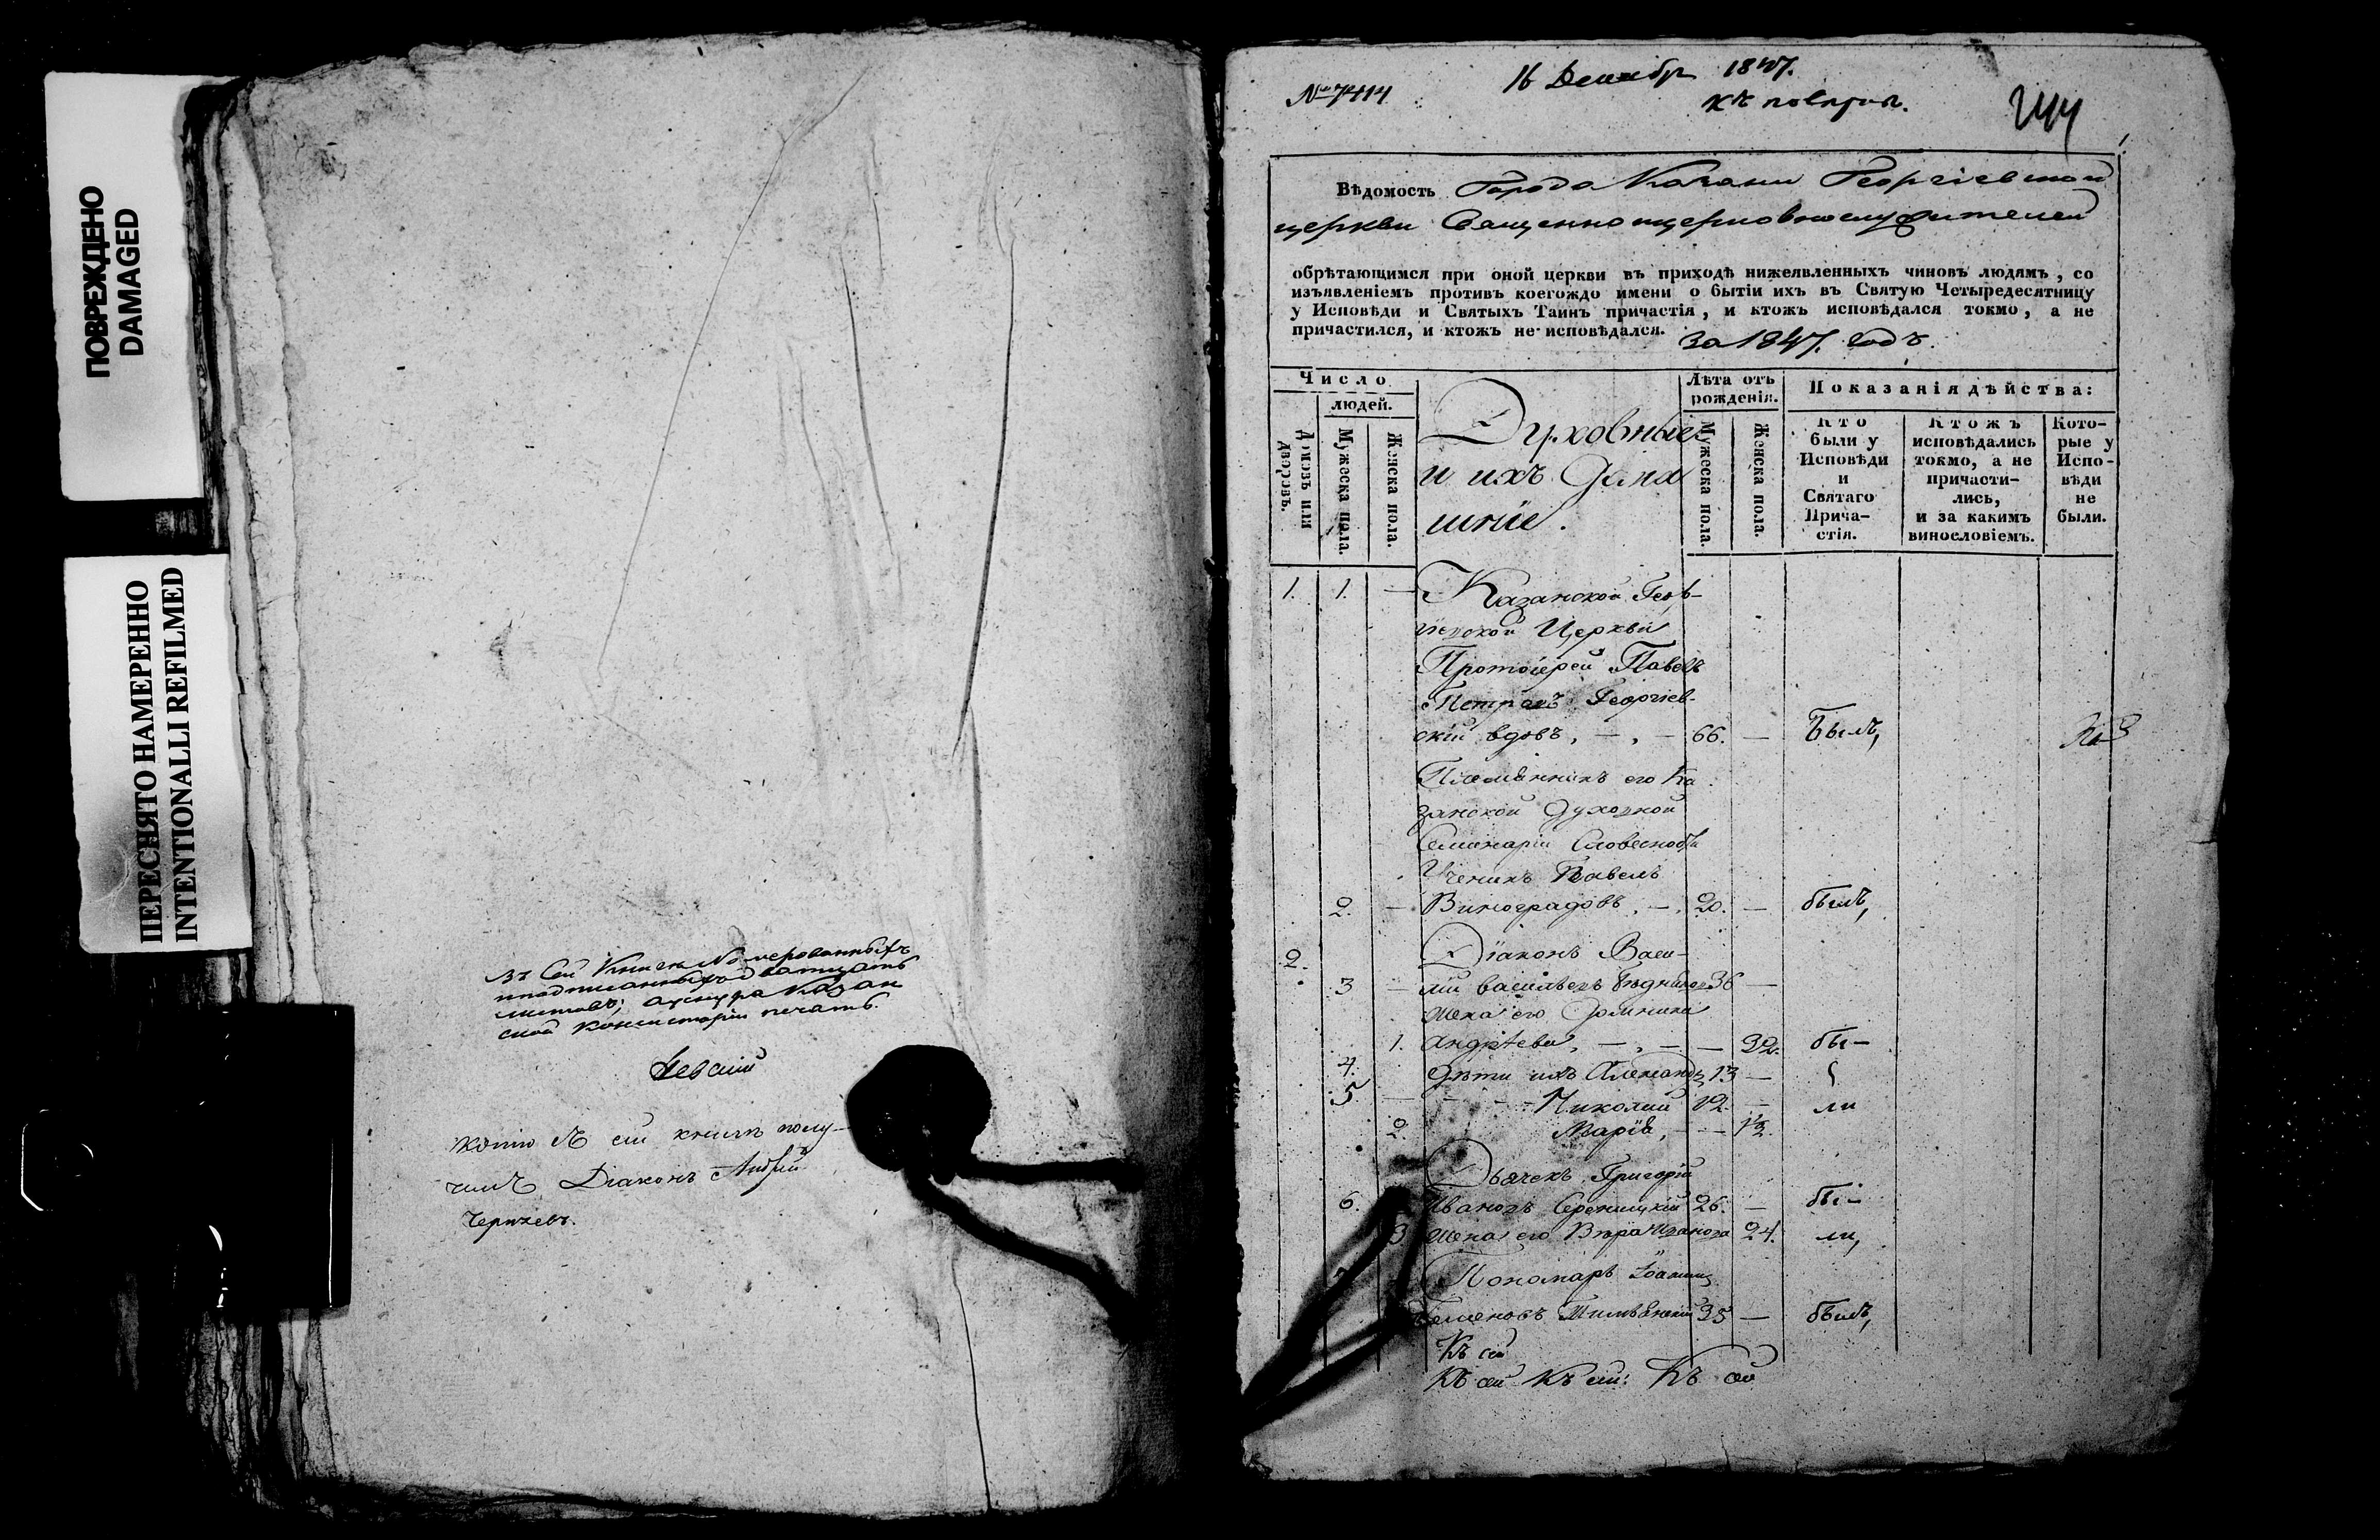 ПОВРЕЖДЕНО
DAMAGED
ПЕРЕСНЯТО НАМЕРЕННО
INTENTIONALLI REFILMED
въ сей книге номерованныхъ
листовъ;
ской консисторіи печать.
сей книги полу-
чилъ Діаконъ Андрей
№ 7414
16 Декабр 1847.
244
Вѣдомость Города Казани Георгіевской
церкви Священноцерковнослужителей
обрѣтающимся при оной церкви въ приходѣ нижеявленныхъ чиновъ людямъ, со
изъявленіемъ противъ коегождо имени о бытіи ихъ въ Святую Четыредесятницу
у Исповѣди и Святыхъ Таинъ причастія, и ктожъ исповѣдался токмо, а не
причастился, и ктожъ не исповѣдался. За 1847. годъ.
Число
людей.
Домовъ или дворовъ.
Мужеска пола.
Женска пола.
Духовные
и ихъ дома
шніе.
Лѣта отъ
рожденія.
Мужеска пола.
Женска пола.
Показанія дѣйства:
Кто
были у
Исповѣди
и
Святаго
Прича-
стія.
Ктожъ
исповѣдались
токмо, а не
причасти-
лись,
и за какимъ
винословіемъ.
Кото-
рые у
Испо-
вѣди
не
были.
1. 1. — Казанской Геор-
гіевской Церкви
Протоіерей Павелъ
Петровъ Георгіев-
скій вдовъ, — , — 66. — Былъ,
Племянникъ его Ка
занской Духовной
Семинаріи Словесности
Ученикъ Павелъ
2. — Виноградовъ, — . 20. — былъ,
2. Діаконъ Васи-
3 — лій Васильевъ 36 —
жена его Домника
1. Андрѣева, — , — — 32. бы—
4. дѣти ихъ Александръ 13 —
5 — Николай 12. — ли
2. Марія, — — 1½.
Дьячекъ Григорій
6. Ивановъ 26. — бы—
3 жена его Вѣра Иванова 24. ли,
7 Пономарь Іоаннъ
Семеновъ 35 — былъ,
Къ сей
Къ сей Къ сей: Къ сей